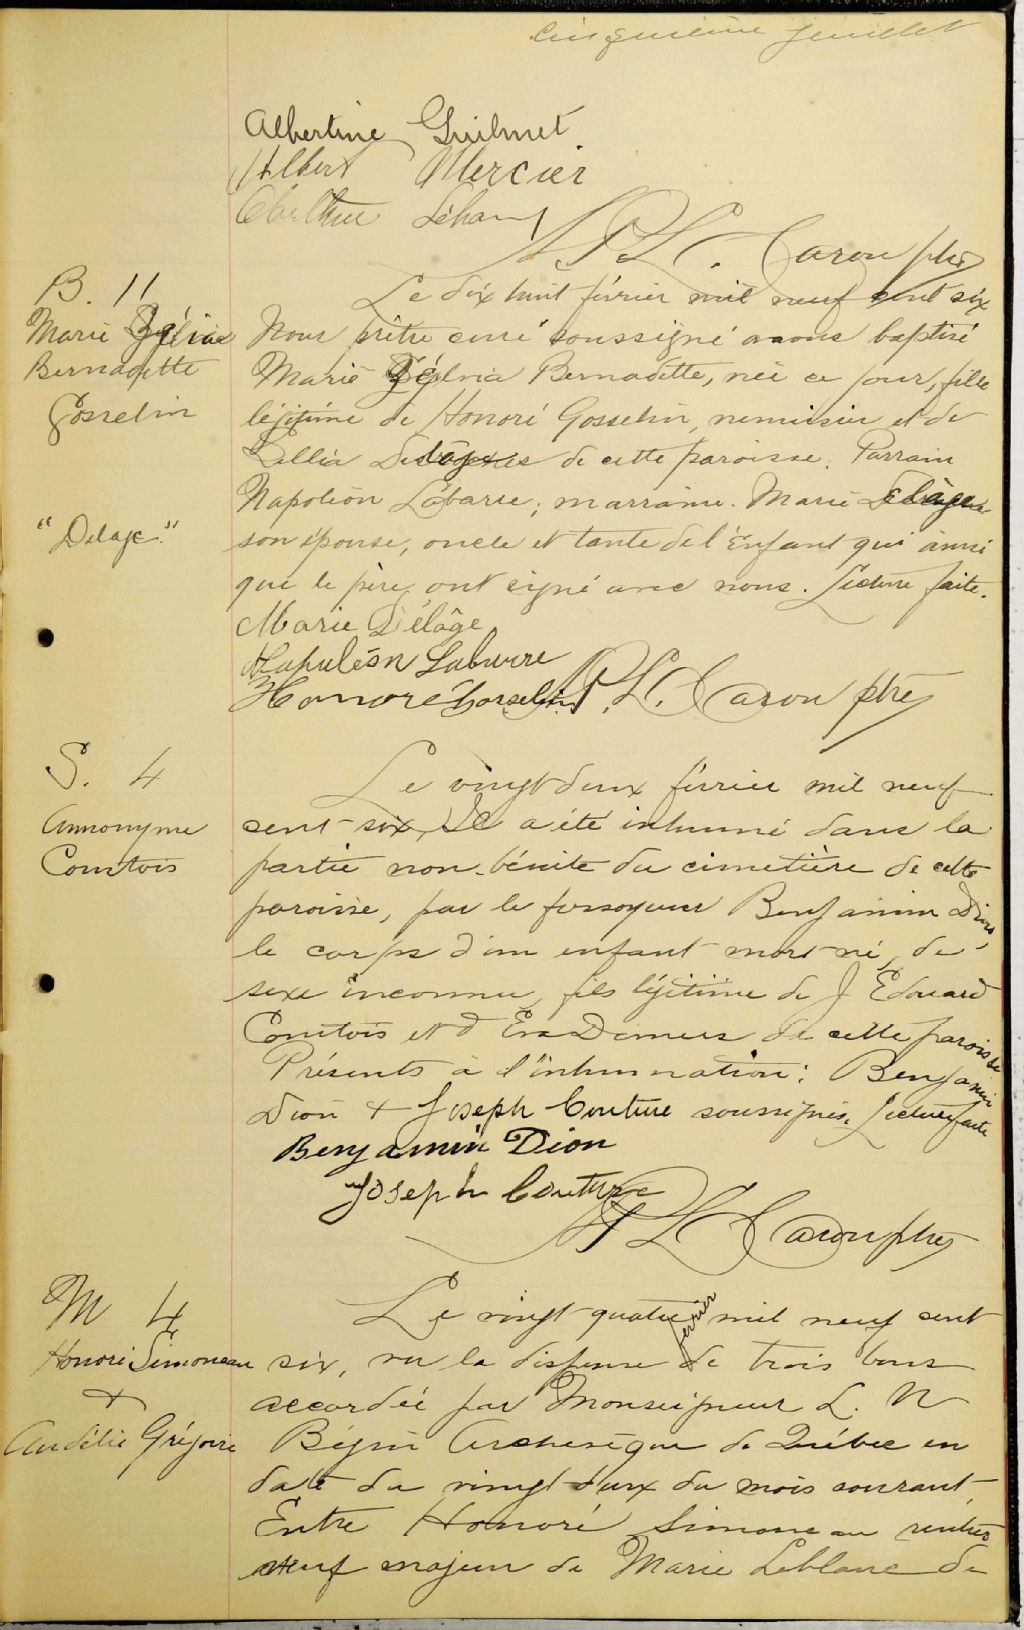 Cinquième feuillet
Albertine Guilmet
Albert Mercier
Arthur
P. L. C. Caron ptre
B. 11
Marie
Bernadette
Gosselin
"Delage"
Le dix huit février mil neuf cent six
Nous prêtre curé soussigné avons baptisé
Marie Bernadette, née ce jour, fille
légitime de Honoré Gosselin, menuisier et de
Lellia de cette paroisse. Parrain
Napoléon Labarre; marraine. Marie Delage
son épouse, oncle et tante de l'Enfant qui ainsi
que le père ont signé avec nous. Lecture faite.
Marie Délâge
Napoléon Labarre
Honoré Gosselin P. L. C. Caron ptre
S. 4
Annonyme
Comtois
Le vingt deux février mil neuf
cent six, Il a été inhumé dans la
partie non-bénite du cimetière de cette
paroisse, par le fossoyeur Benjamin Dion,
le corps d'un enfant mort-né, de
sexe inconnu, fils légitime de J Edouard
Comtois et d'Eva Demers de cette paroisse
Présents à l'inhumation: Benjamin
Dion & Joseph Couture soussignés. Lecture faite
Benjamin Dion
Joseph Couture
P L C Caron ptre
M 4
Honoré Simoneau
&
Aurélie Grégoire
Le vingt quatre février mil neuf cent
six, vu la dispense de trois bans
accordée par Monseigneur L. N
Bégin Archevêque de Québec en
date du vingt deux du mois courant,
Entre Honoré Simoneau rentier
veuf majeur de Marie Leblanc de